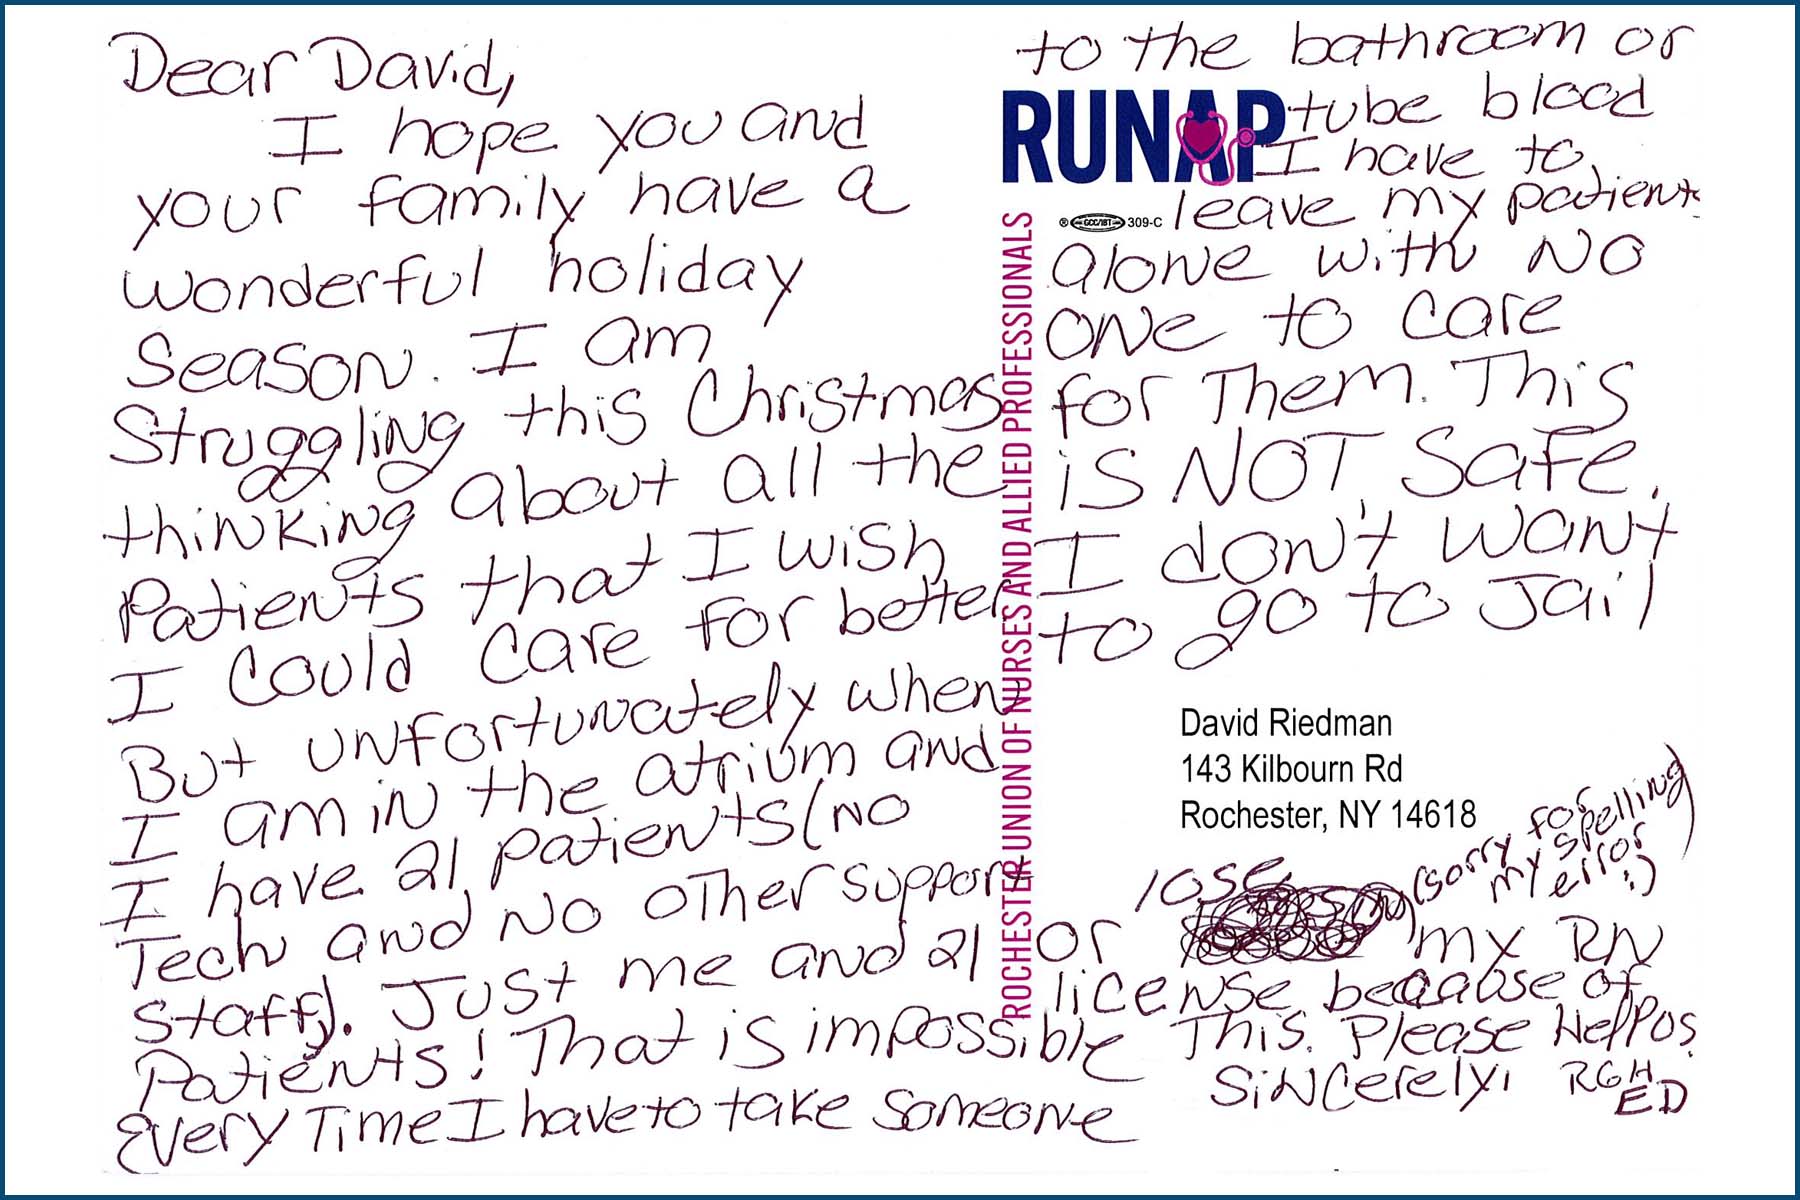 Dear David,
I hope you and
your family have a
wonderful holiday
Season. I am
Struggling this Christmas
thinking about all the
Patients that I wish
I could care for better
But unfortunately when
I am in the atrium and
I have 21 patients (no
Tech and no other support
staff). Just me and 21
Patients! That is impossible
Every Time I have to take someone
to the bathroom or
tube blood
I have to
leave my patients
alone with no
one to care
for Them. This
is NOT Safe.
I don't want
to go to Jail
or lose my RN
(sorry for
my spelling
error :)
license because of
This. Please Help us.
Sincerely,
RGH
ED
RUNAP
® GCC/IBT 309-C
ROCHESTER UNION OF NURSES AND ALLIED PROFESSIONALS
David Riedman
143 Kilbourn Rd
Rochester, NY 14618